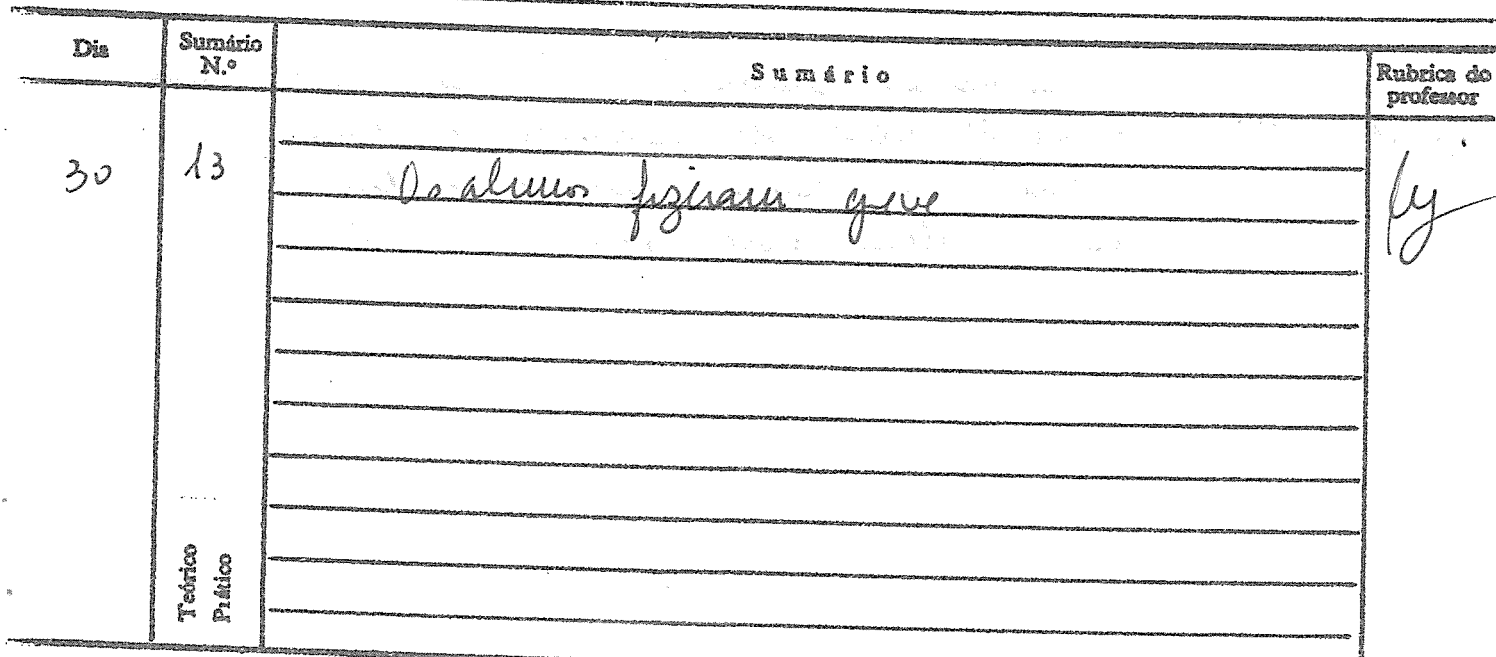 Dia
Sumário N.º
Sumário
Rubrica do professor
30
13
Os alunos fizeram greve
Teórico
Prático